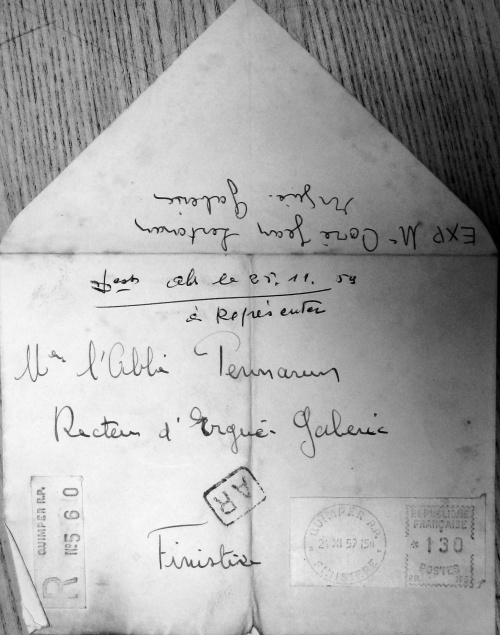 EXP Mr Coré Jean Lestonan
Ergué-Gabéric
abs le 25.11.57
à Représenter
Mr l'Abbé Pennarun
Recteur d'Ergué-Gabéric
AR
Finistère
R QUIMPER R.P.
No 560
QUIMPER R.P.
FINISTERE
REPUBLIQUE
FRANÇAISE
*130
POSTES